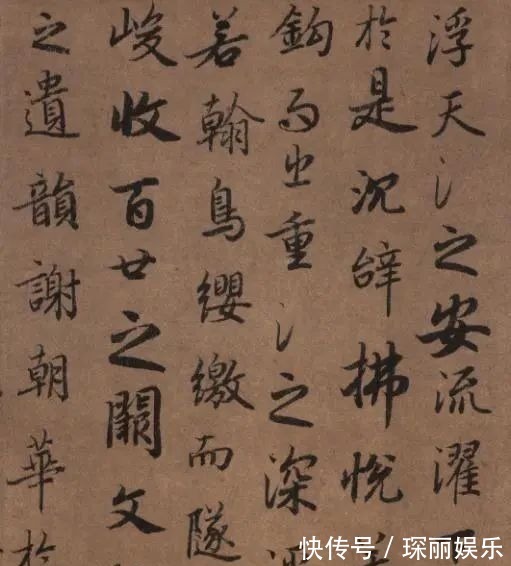 浮天氵之安流濯
於是沉辞拂悅
鉤而出重氵之深
若翰鳥纓繳而隧
峻收百世之闕文
之遺韻謝朝華於
快传号 / 琛丽娱乐